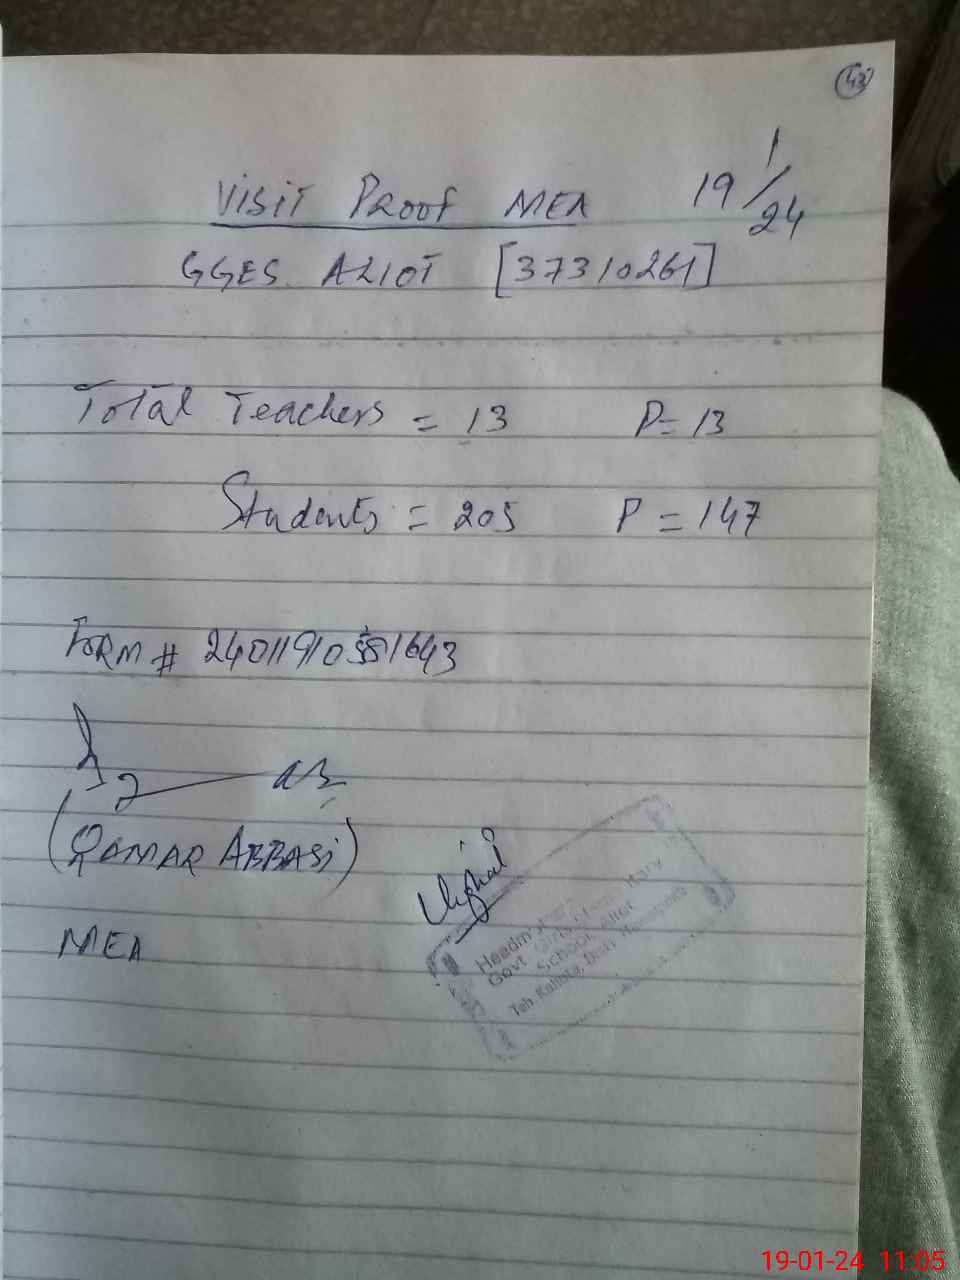 43
Visit Proof MEA 19/1/24
GGES ALIOT [37310261]
Total Teachers = 13 P= 13
Students = 205 P = 147
FORM #
(QAMAR ABBASi)
MEA
Govt Girls
School Aliot
Teh Kahuta, Distt
19-01-24 11:05